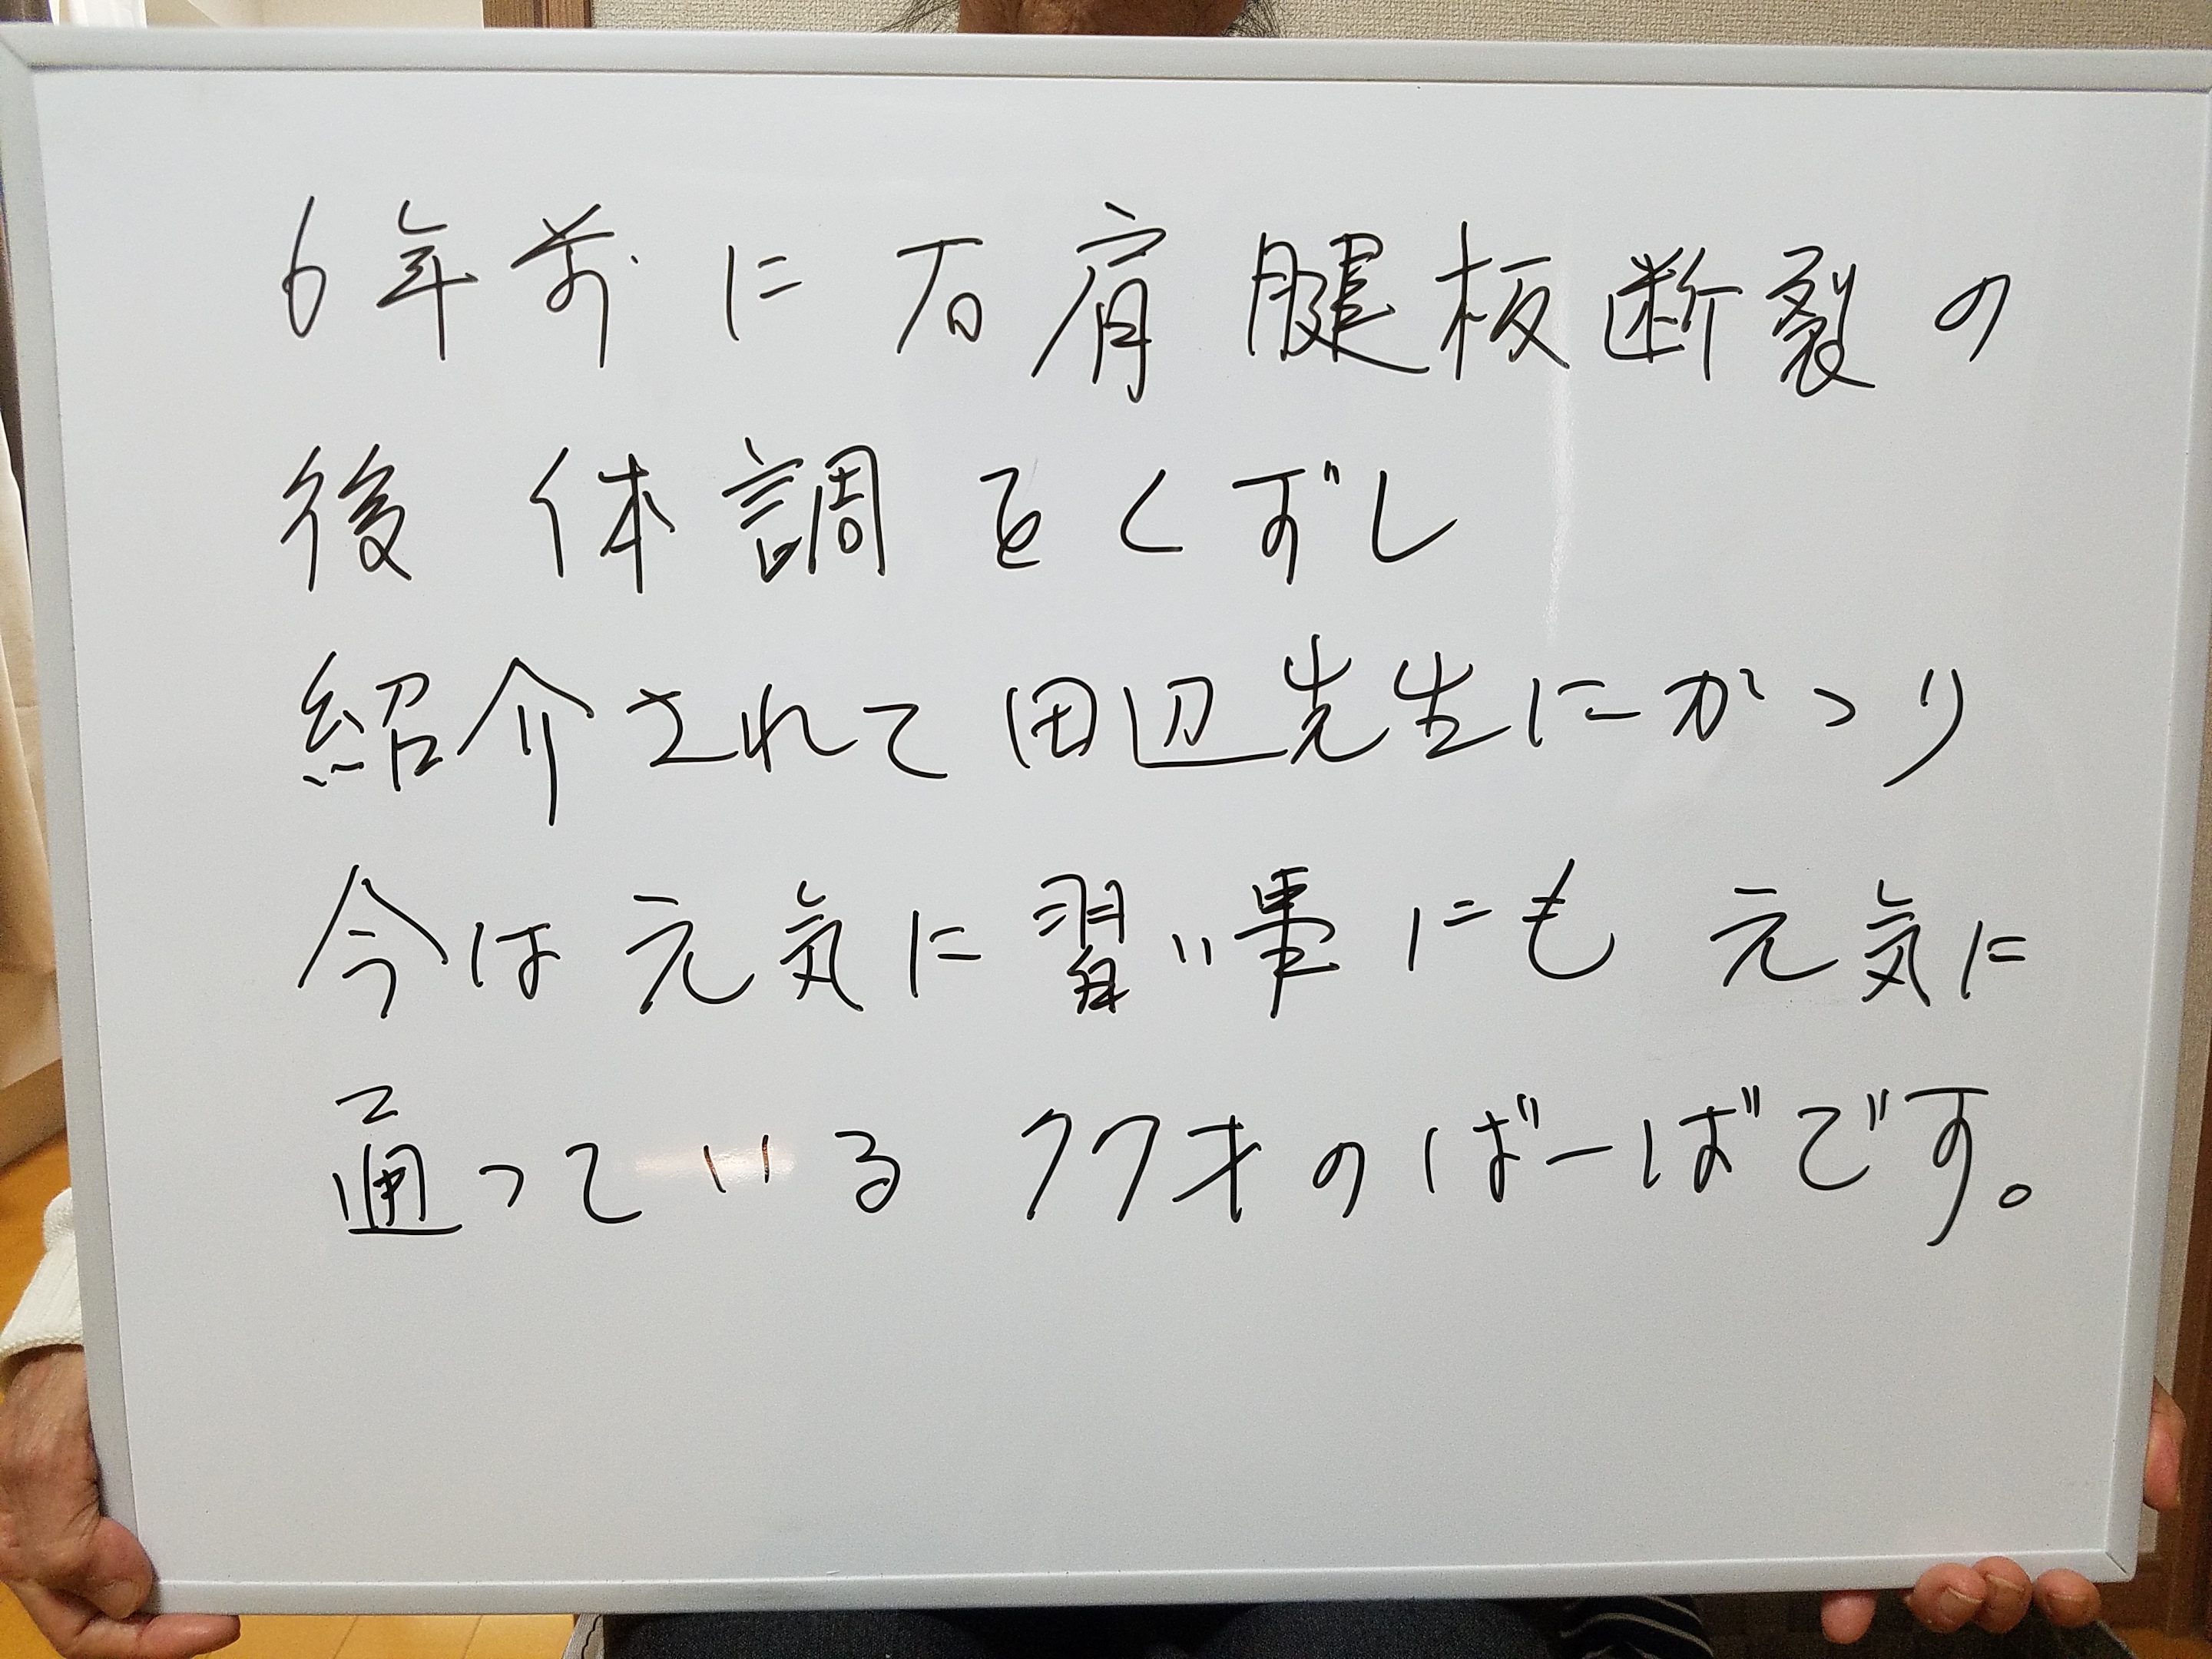 6年前に右肩腱板断裂の
後 体調をくずし
紹介されて田辺先生にかゝり
今は元気に習い事にも 元気に
通っている 77才のばーばです。